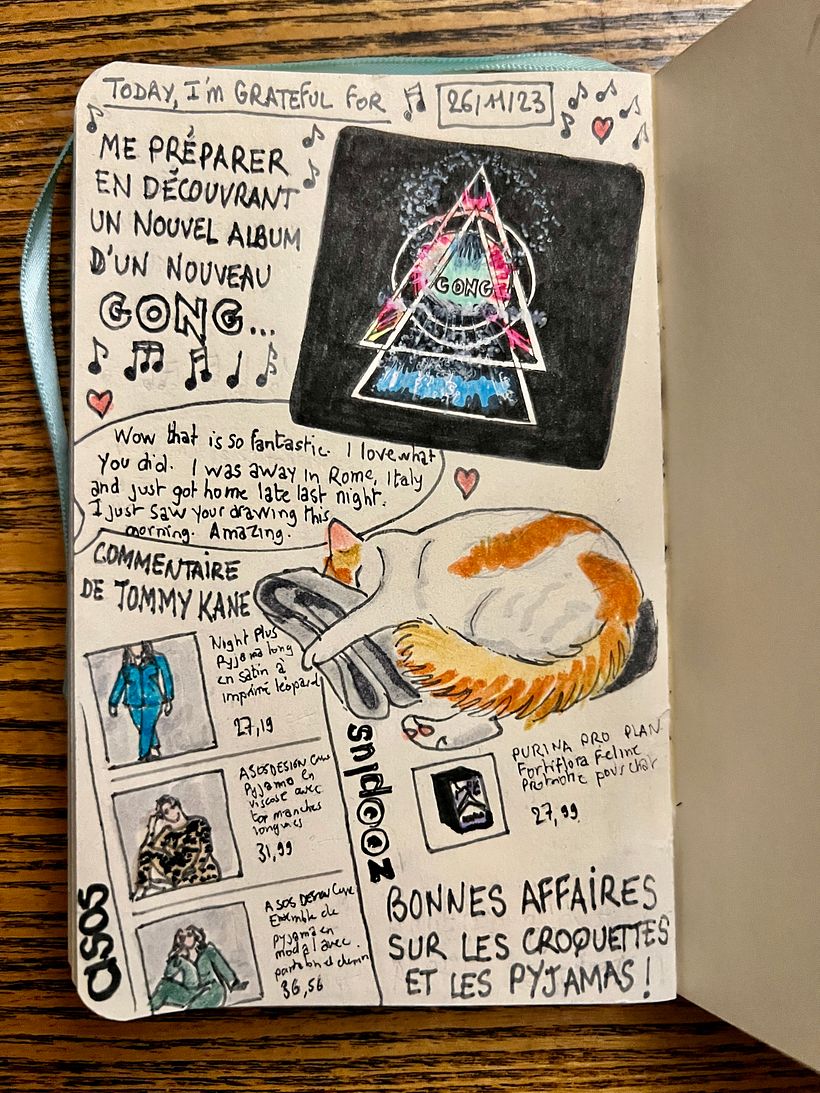 TODAY, I'M GRATEFUL FOR
26/11/23
ME PRÉPARER
EN DÉCOUVRANT
UN NOUVEL ALBUM
D'UN NOUVEAU
GONG...
GONG
Wow that is so fantastic. I love what
you did. I was away in Rome, Italy
and just got home late last night.
I just saw your drawing this
morning. Amazing.
COMMENTAIRE
DE TOMMY KANE
Night Plus
Pyjama long
en satin à
imprimé léopard
27,19
ASOS DESIGN
Pyjama en
viscose avec
top manches
longues
31,99
ASOS DESIGN Curve
Ensemble de
pyjama en
modal avec
pantalon et
36,56
asos
zooplus
PURINA PRO PLAN
Fortiflora Feline
Probiotic pour chat
27,99
BONNES AFFAIRES
SUR LES CROQUETTES
ET LES PYJAMAS !